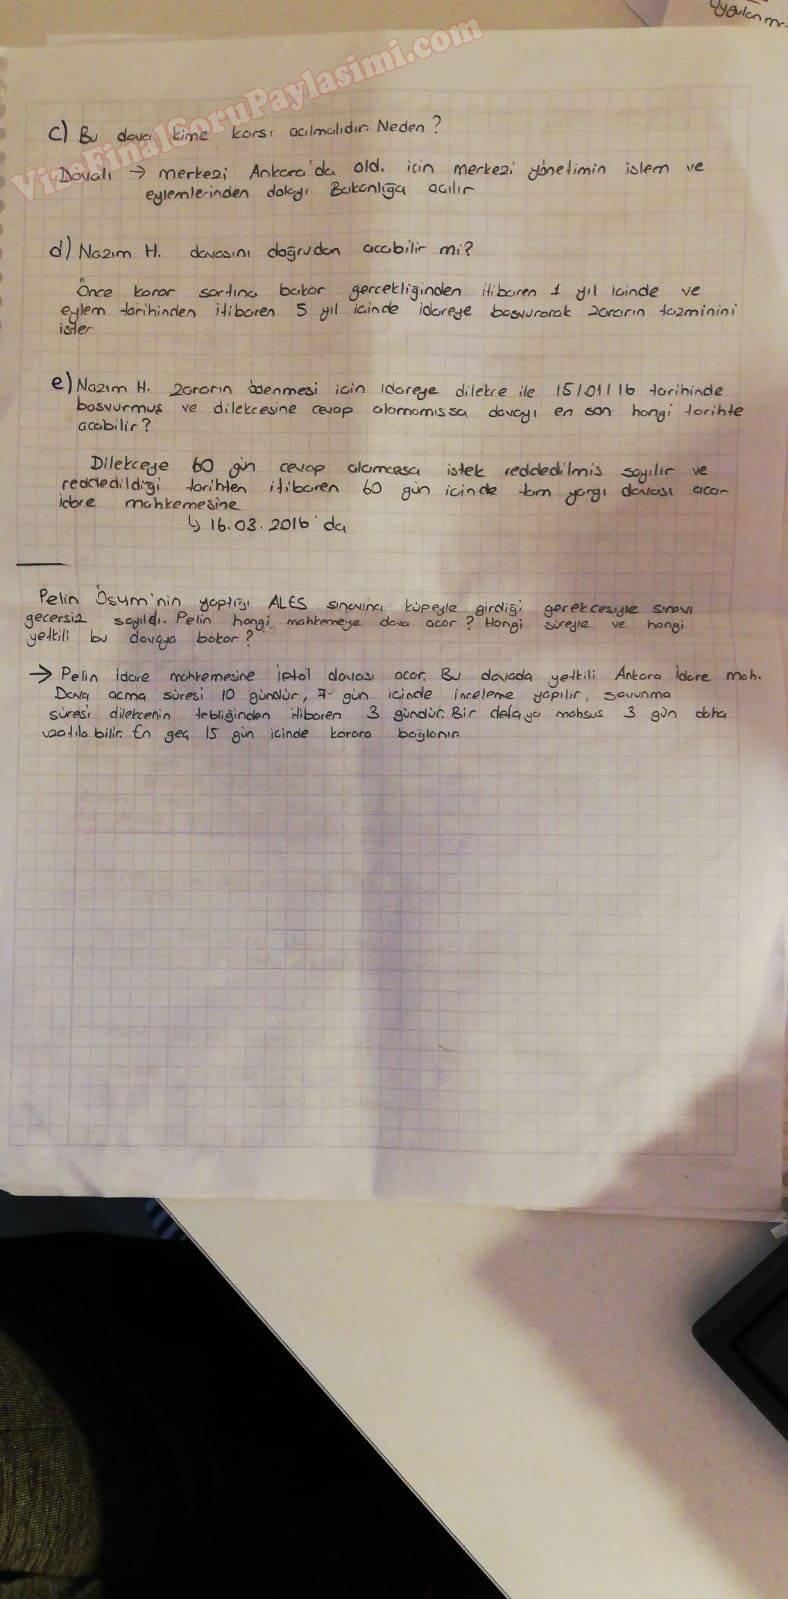 Uygulanmı
VizeFinalSoruPaylasimi.com
c) Bu dava kime karşı açılmalıdır. Neden?
Davalı → merkezi Ankara'da old. için merkezi yönetimin işlem ve
eylemlerinden dolayı Bakanlığa açılır
d) Nazım H. davasını doğrudan acabilir mi?
Önce karar şartına bakar gercekliginden itibaren 1 yıl icinde ve
eylem tarihinden itibaren 5 yıl icinde idareye basvurarak zararın tazminini
ister
e) Nazım H. zararın ödenmesi icin İdareye dilekce ile 15/01/16 tarihinde
basvurmus ve dilekcesine cevap alamamıssa davayı en son hangi tarihte
acabilir?
Dilekceye 60 gün cevap alamcasa istek reddedilmis sayılır ve
reddedildigi tarihten itibaren 60 gün icinde tam yargı davası acar
idare mahkemesine
↳ 16.03.2016'da
Pelin Ösym'nin yaptığı ALES sınavına küpeyle girdiği gerekcesiyle sınavı
gecersiz sayıldı. Pelin hangi mahkemeye dava acar? Hangi süreyle ve hangi
yetkili bu davaya bakar?
→ Pelin İdare mahkemesine iptal davası acar. Bu davada yetkili Ankara İdare mah.
Dava acma süresi 10 gündür, 7 gün icinde inceleme yapılır, savunma
süresi dilekcenin tebliğinden itibaren 3 gündür. Bir defaya mahsus 3 gün daha
uzatıla bilir. En geç 15 gün icinde karara baglanır